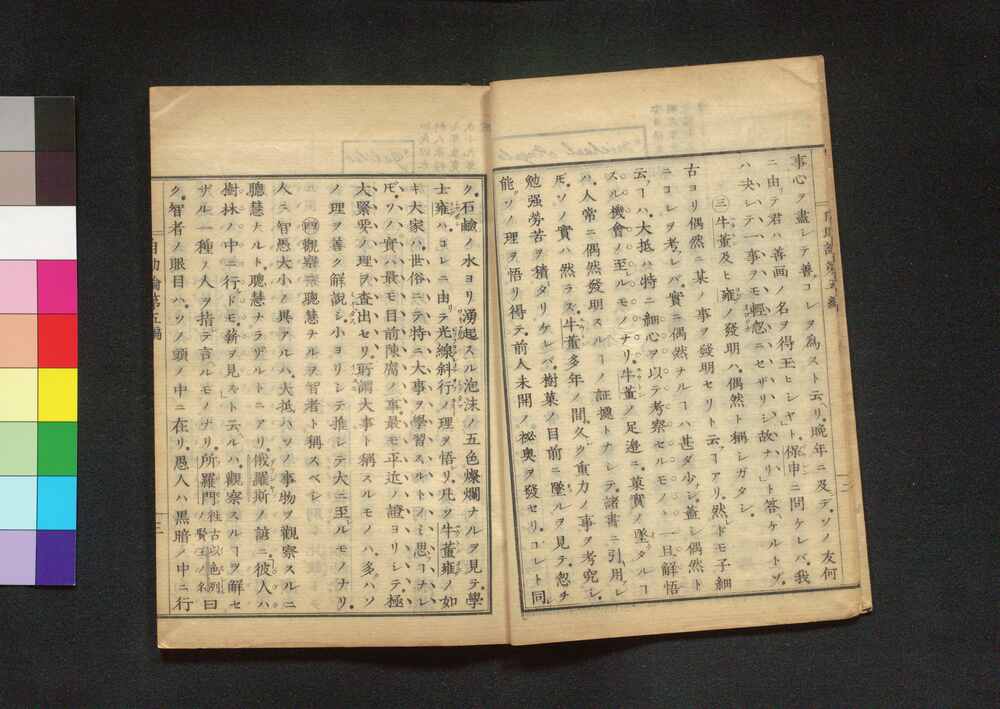 事心ヲ盡シテ善コレヲ為スト云リ晩年ニ及デソノ友何
ニ由テ君ハ善画ノ名ヲ得玉ヒシヤト保申ニ問ケレバ我
ハ決シテ一事ヲモ輕忽ニセザリシ故ナリト答ケルトゾ
㊂牛董及ヒ雍ノ發明ハ偶然ト稱シガタシ
古ヨリ偶然ニ某ノ事ヲ發明セリト云ヿアリ然ドモ子細
ニコレヲ考レバ實ニ偶然ナルヿハ甚ダ少シ蓋シ偶然ト
云ヿハ大抵ハ特ニ細心ヲ以テ考察セルモノヽ一旦解悟
スル機會ノ至ルモノナリ牛董ノ足邊ニ菓實ノ墜タルヿ
ハ人常ニ偶然發明スルヿノ証據トナシテ諸書ニ引用レ
𪜈ソノ實ハ然ラス牛董多年ノ間久ク重力ノ事ヲ考究シ
勉强勞苦ヲ積タリケレバ樹菓ノ目前ニ墜ルヲ見テ忽チ
能ソノ理ヲ悟リ得テ前人未開ノ祕奥ヲ發セリコレト同
ク石鹼ノ水ヨリ湧起スル泡沫ノ五色燦爛ナルヲ見テ學
士雍ハコレニ由テ光線斜行ノ理ヲ悟リ凡ソ牛董雍ノ如
キ大家ハ世俗ニテ特ニ大事ヲ學習スルトノミ思ヿナレ
𪜈ソノ實ハ最モ目前陳腐ノ事最モ平近ノ證ヨリシテ極
大緊要ノ理ヲ査出セリ所謂大事ト稱スルモノハ多ハソ
ノ理ヲ善ク解説シ小ヨリシテ推シテ大ニ至ルモノナリ
㊃觀察聰慧ナルヲ智者ト稱スベシ
人ニ智愚大小ノ異アルハ大抵ハソノ事物ヲ觀察スルニ
聰慧ナルト聰慧ナラザルトニアリ俄羅斯ノ諺ニ彼人ハ
樹林ノ中ニ行ドモ薪ヲ見ズト云ルハ觀察スルヿヲ解セ
ザル一種ノ人ヲ指テ言ルモノナリ所羅門往古以色列ノ賢王ノ名曰
ク智者ノ眼目ハソノ頭ノ中ニ在リ愚人ハ黒暗ノ中ニ行
自助論第五編
三